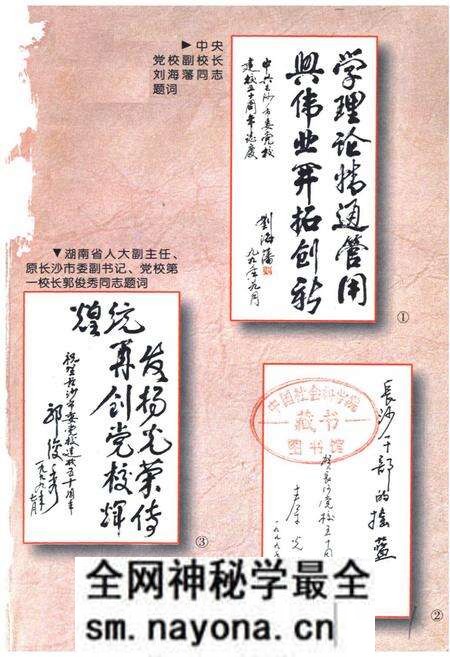 ▶中央
党校副校长
刘海藩同志
题词
学理论精通管用
兴伟业开拓创新
中共长沙市委党校
建校五十周年志庆
劉海藩
一九九九年九月
①
▼湖南省人大副主任、
原长沙市委副书记、党校第
一校长郭俊秀同志题词
发扬光荣传
统再创党校辉
煌
祝贺长沙市委党校建校五十周年
郭俊秀
③
长沙干部的摇篮
贺长沙党校五十周
一九九九
中国社会科学院
藏书
图书馆
②
全网神秘学最全
sm.nayona.cn